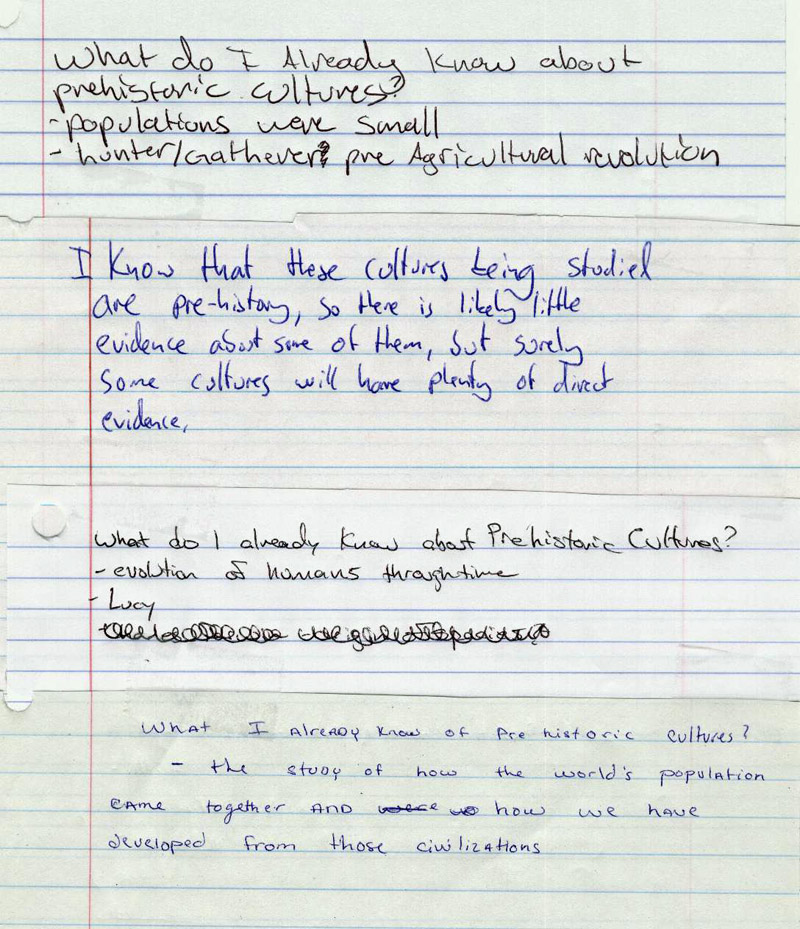 What do I Already Know about
prehistoric cultures?
- populations were small
- hunter/Gatherer pre Agricultural revolution
I Know that these cultures being studied
are pre-history, so there is likely little
evidence about some of them, but surely
some cultures will have plenty of direct
evidence.
What do I already know about Prehistoric Cultures?
- evolution of humans through time
- Lucy
What I Already Know of Pre historic cultures?
- the study of how the world's population
came together AND how we have
developed from those civilizations